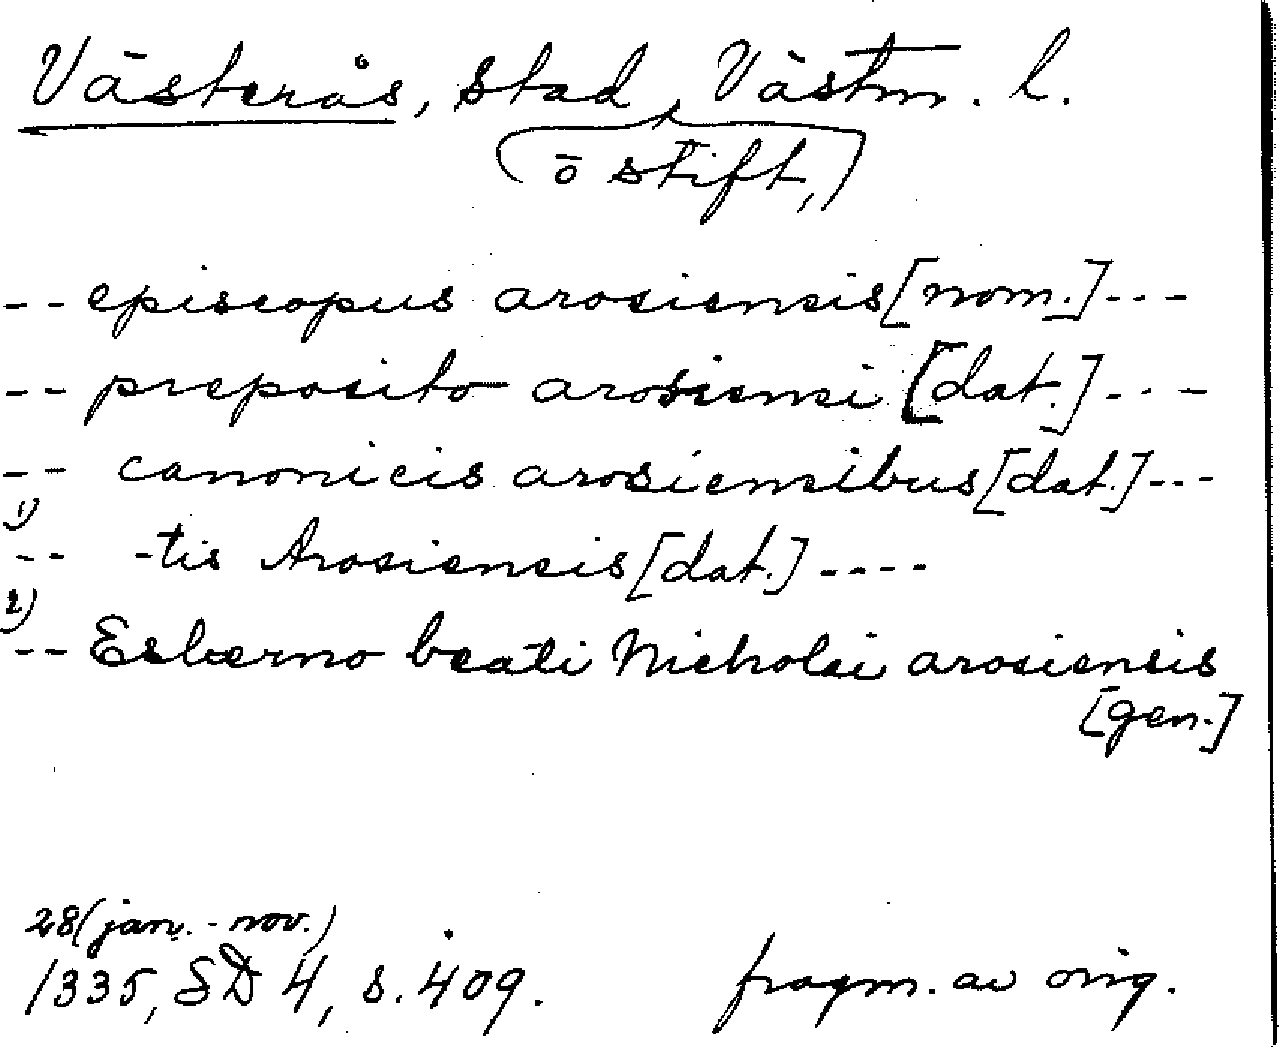 Västerås, stad, Västm. l.
(ö stift,)
-- episcopus arosiensis [nom.] ---
-- preposito arosiensi [dat.] ---
-- canonicis arosiensibus [dat.] ---
1)
-- -tis Arosiensis [dat.] ----
2)
-- Esbærno beati Nicholai arosiensis
[gen.]
28 (jan. - nov.)
1335, SD 4, s. 409. fragm. av orig.